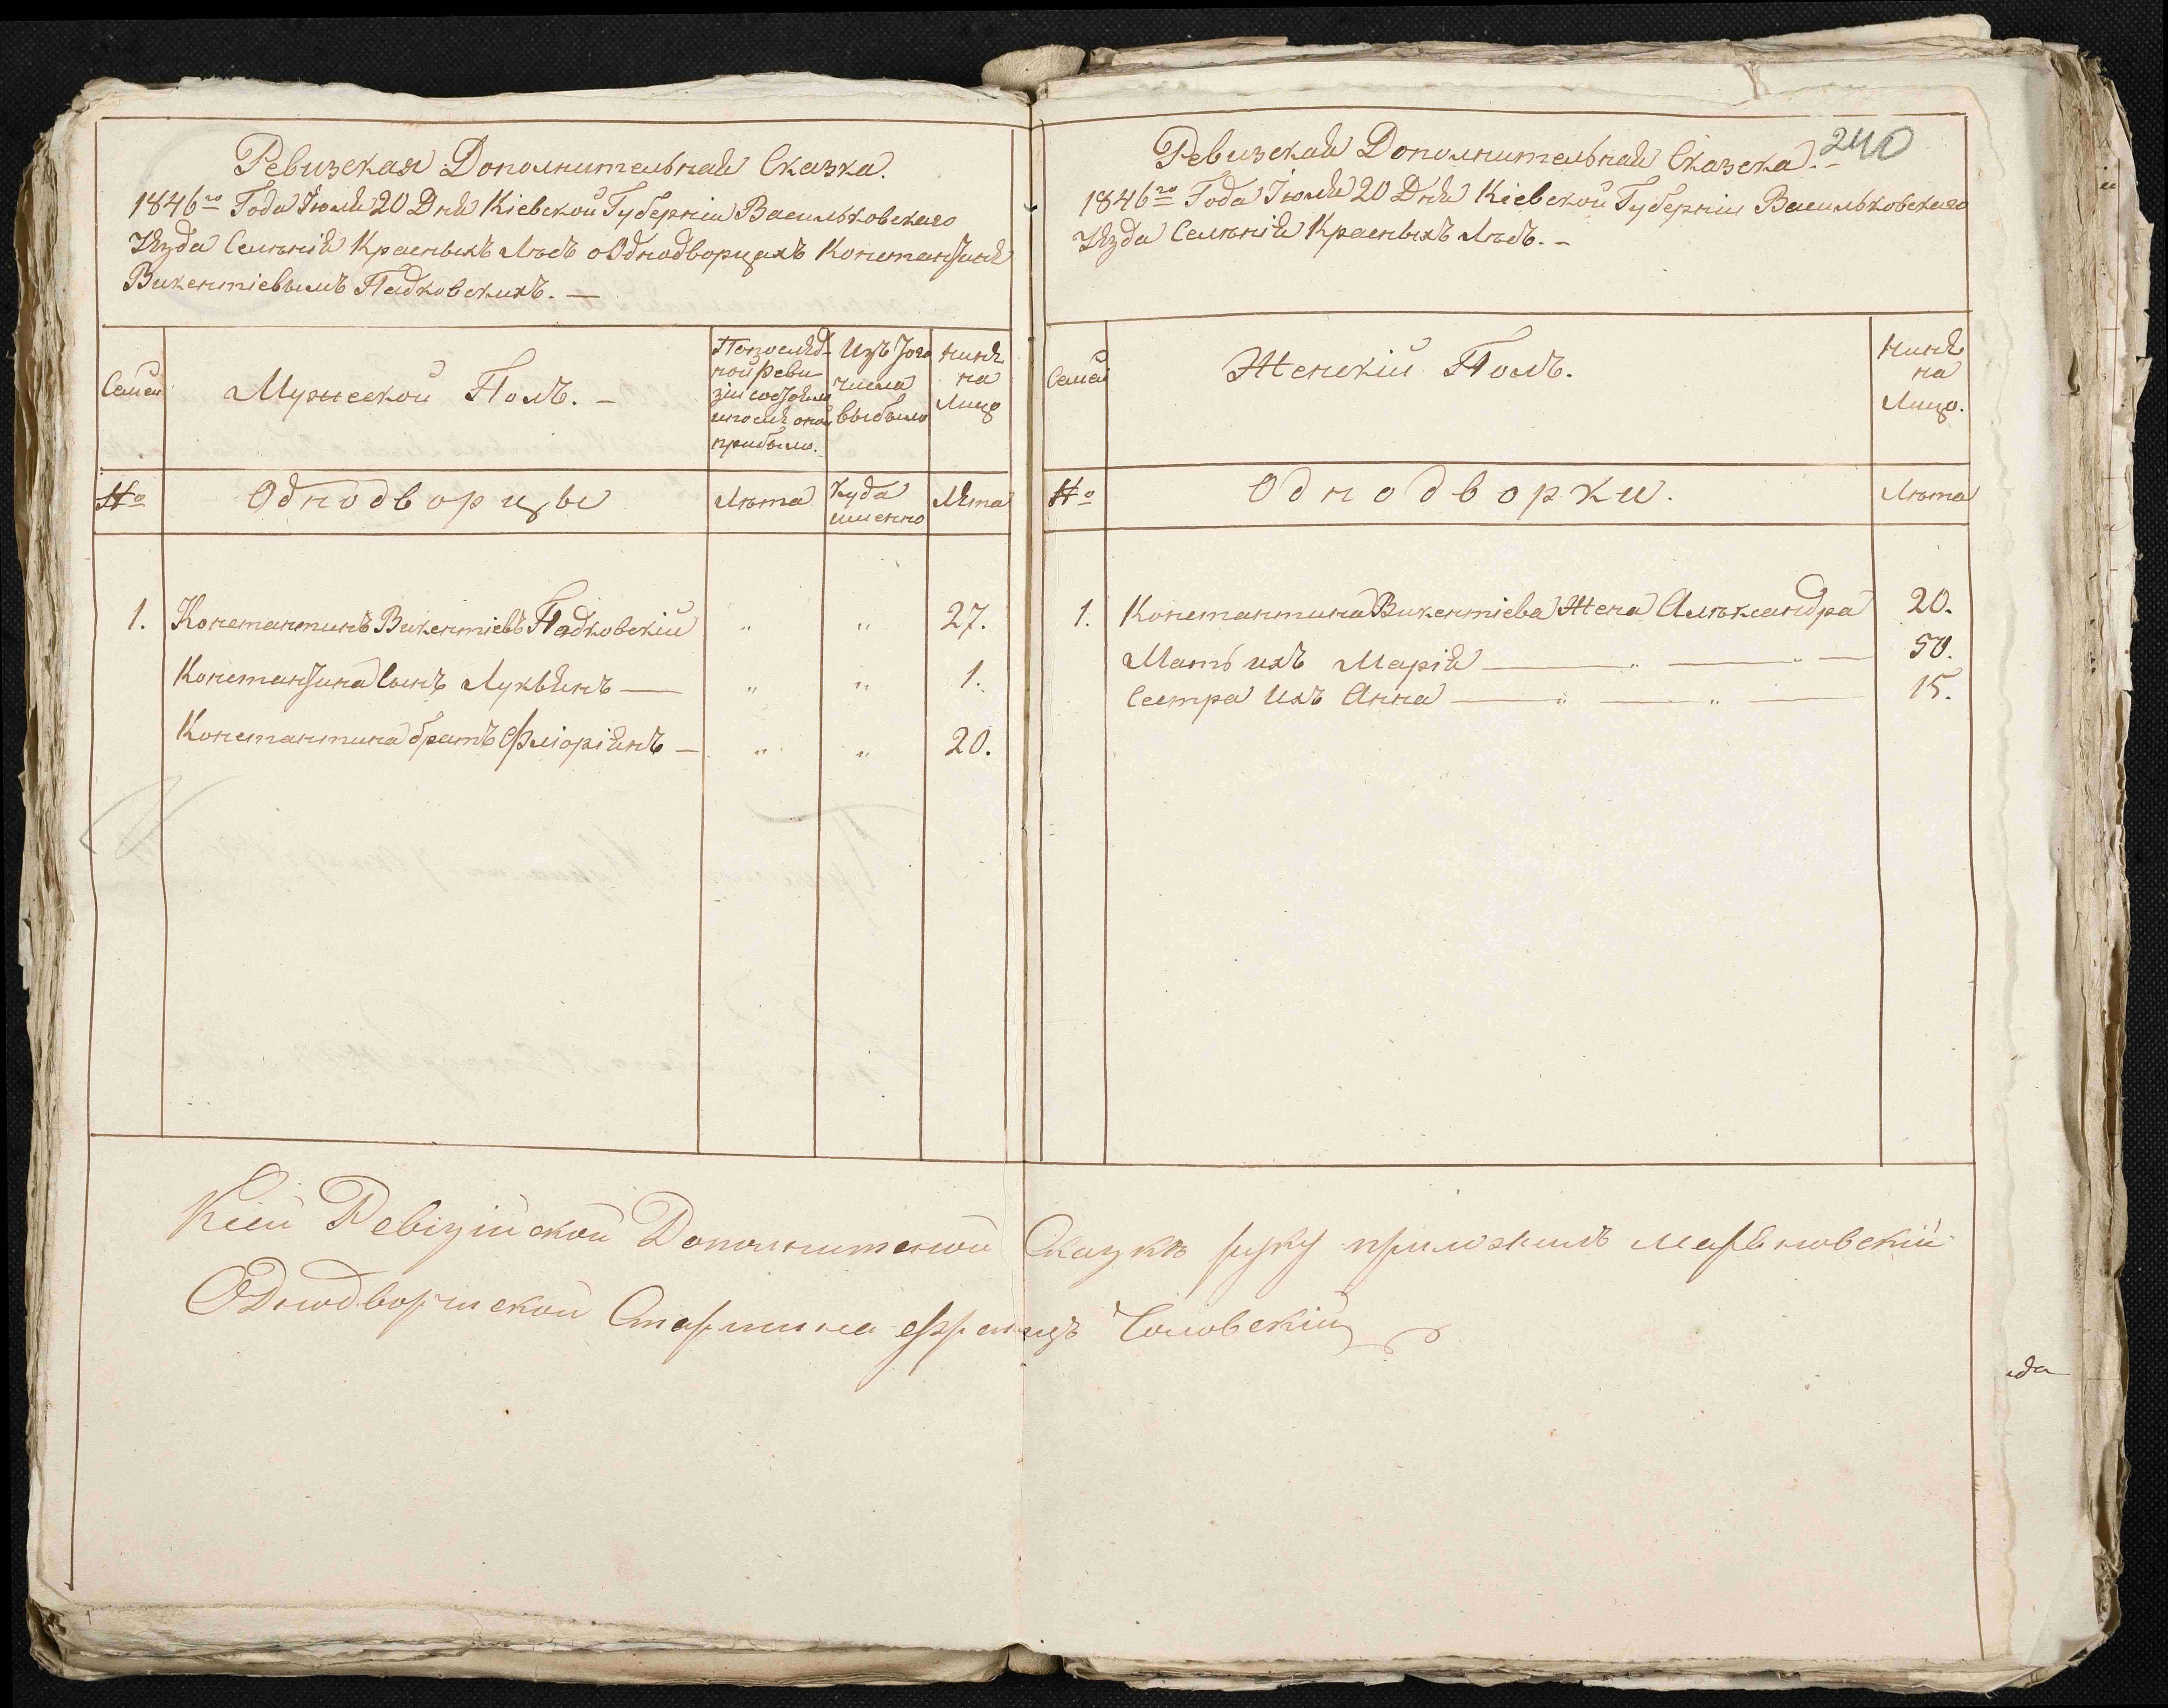 Ревизская Дополнительная Сказка.
1846го Года Июля 20 Дня Кіевской Губерніи Васильковского
Уѣзда Селѣнія Красныхъ Лѣсъ о Однодворцахъ Константинѣ
Викентіевымъ Падковскихъ. —
Семей
Мужеской Полъ. –
По послѣд-
ной реви
зіи состояло
и после оной
прибыло.
Изъ того
числа
выбыло
нинѣ
на
Лицо
№
Однодворцы
Лѣта
Куда
именно
Лѣта
1. Константинъ Викентіевъ Падковскій " " 27.
Константина сынъ Лукьянъ — " " 1.
Константина братъ Флоріянъ — " " 20.
240
Ревизская Дополнительная Сказска. –
1846го Года Іюля 20 Дня Кіевской Губерніи Васильковского
Уѣзда Селѣнія Красныхъ Лѣсъ. –
Семей
Женскій Полъ.
нинѣ
на
Лицо.
№
Однодворки.
Лѣта
1. Константина Викентіева Жена Алѣксандра 20.
Мать ихъ Марія — " — " — 50.
Сестра Ихъ Анна — " — " — 15.
К сей Ревізійской Дополнитеной Сказкѣ руку приложилъ
Однодворческой Старшина Францъ
да